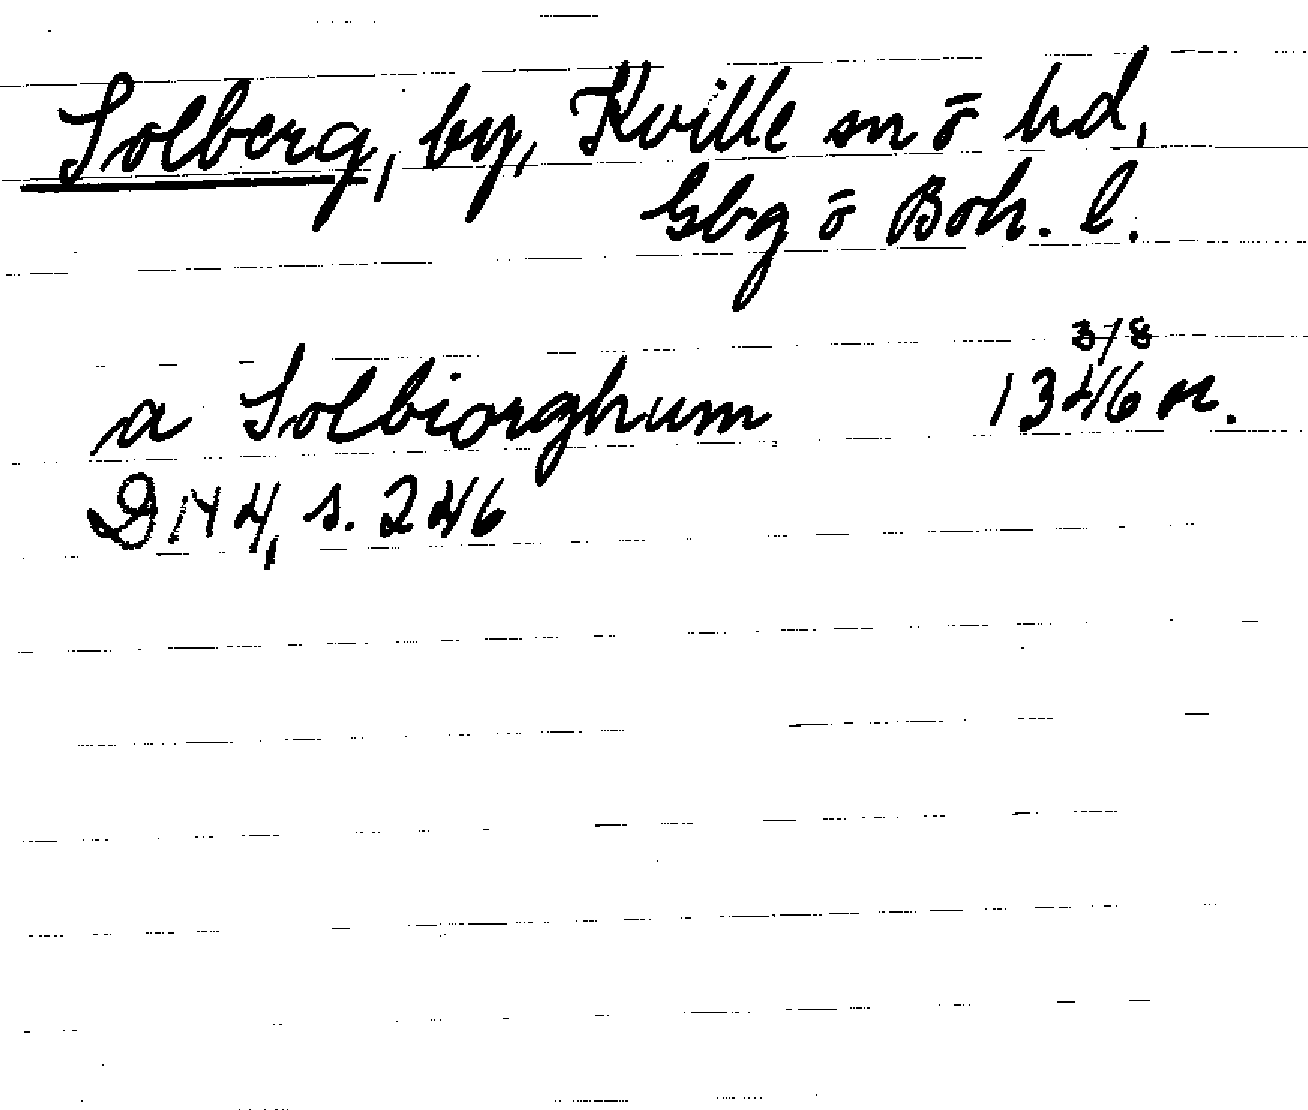 Solberg, by, Kville sn o hd,
Gbg o Boh. l.
3/8
a Solbiorghum 1346 or.
DN 4, s. 246